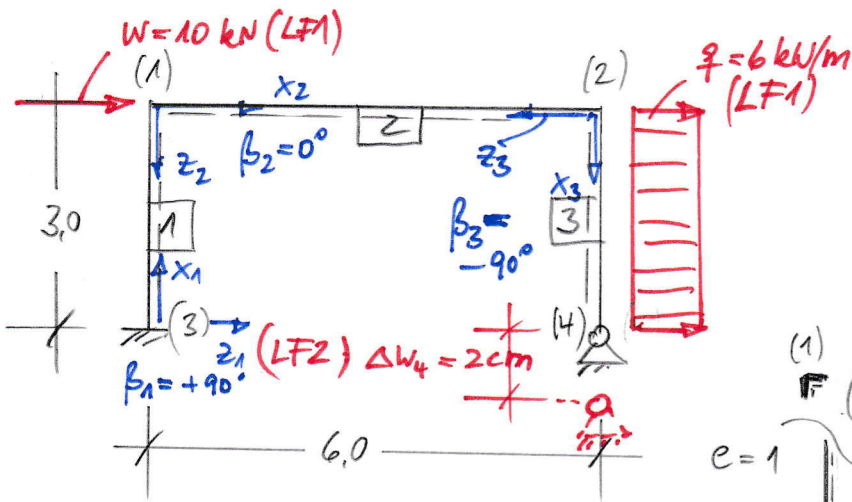 W = 10 kN (LF1)
(1)
(2)
q = 6 kN/m
(LF1)
x₂
2
z₂
β₂ = 0°
z₃
x₃
3,0
1
β₃ =
-90°
3
x₁
(3)
z₁
(LF2) Δw₄ = 2cm
(4)
β₁ = +90°
6,0
(1)
e = 1